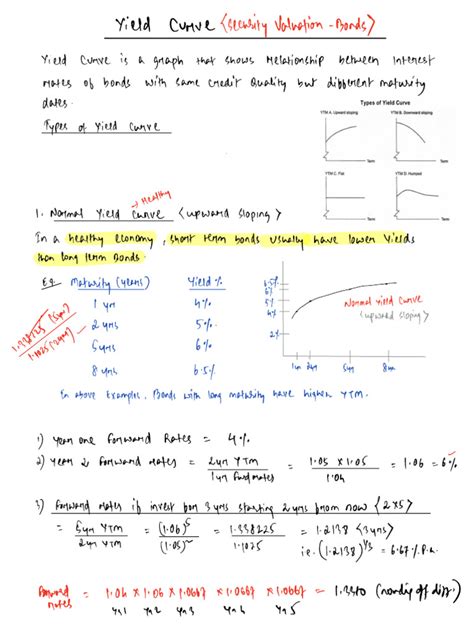 Yield Curve (Security Valuation - Bonds)
Yield Curve is a graph that shows relationship between interest
rates of bonds with same credit quality but different maturity
dates.
Types of Yield Curve
Types of Yield Curve
YTM A. Upward sloping
YTM B. Downward sloping
Term
Term
YTM C. Flat
YTM D. Humped
Term
Term
→ Healthy
1. Normal Yield Curve (upward sloping)
In a healthy economy, short term bonds usually have lower yields
than long term Bonds.
Eg. Maturity (years) Yield %
1 yr 4%
2 yrs 5%
5 yrs 6%
8 yrs 6.5%
1.338225 (5yr)
1.1025 (2yr)
6.5%
6%
5%
4%
2%
Normal Yield Curve
(upward sloping)
1yr 2yr 5yr 8yr
In above Examples, Bonds with long maturity have higher YTM.
1) Year one Forward Rates = 4%
2) Year 2 Forward rates = 2yr YTM / 1yr Fwd rates = 1.05 × 1.05 / 1.04 = 1.06 = 6%
3) Forward rates if invest for 3 yrs starting 2 yrs from now (2×5)
= 5yr YTM / 2yr YTM = (1.06)^5 / (1.05)^2 = 1.338225 / 1.1025 = 1.2138 (3yrs)
i.e. (1.2138)^1/3 = 6.67% P.a.
Forward rates = 1.04 × 1.06 × 1.0667 × 1.0667 × 1.0667 = 1.3380 (rounding off diff.)
Yr1 Yr2 Yr3 Yr4 Yr5